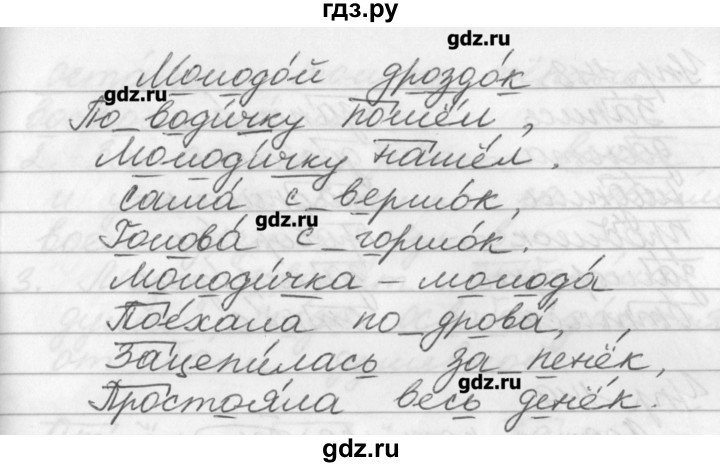 гдз.ру
gdz.ru
Молодо́й дроздо́к
gdz.ru
По_води́чку пошёл,
Молоди́чку нашёл.
сама́ с_вершо́к,
gdz.ru
Голова́ с_горшо́к.
Молоди́чка – молода́
Пое́хала по_дрова́,
Зацепи́лась за_пенёк,
gdz.ru
Простоя́ла весь денёк.
gdz.ru